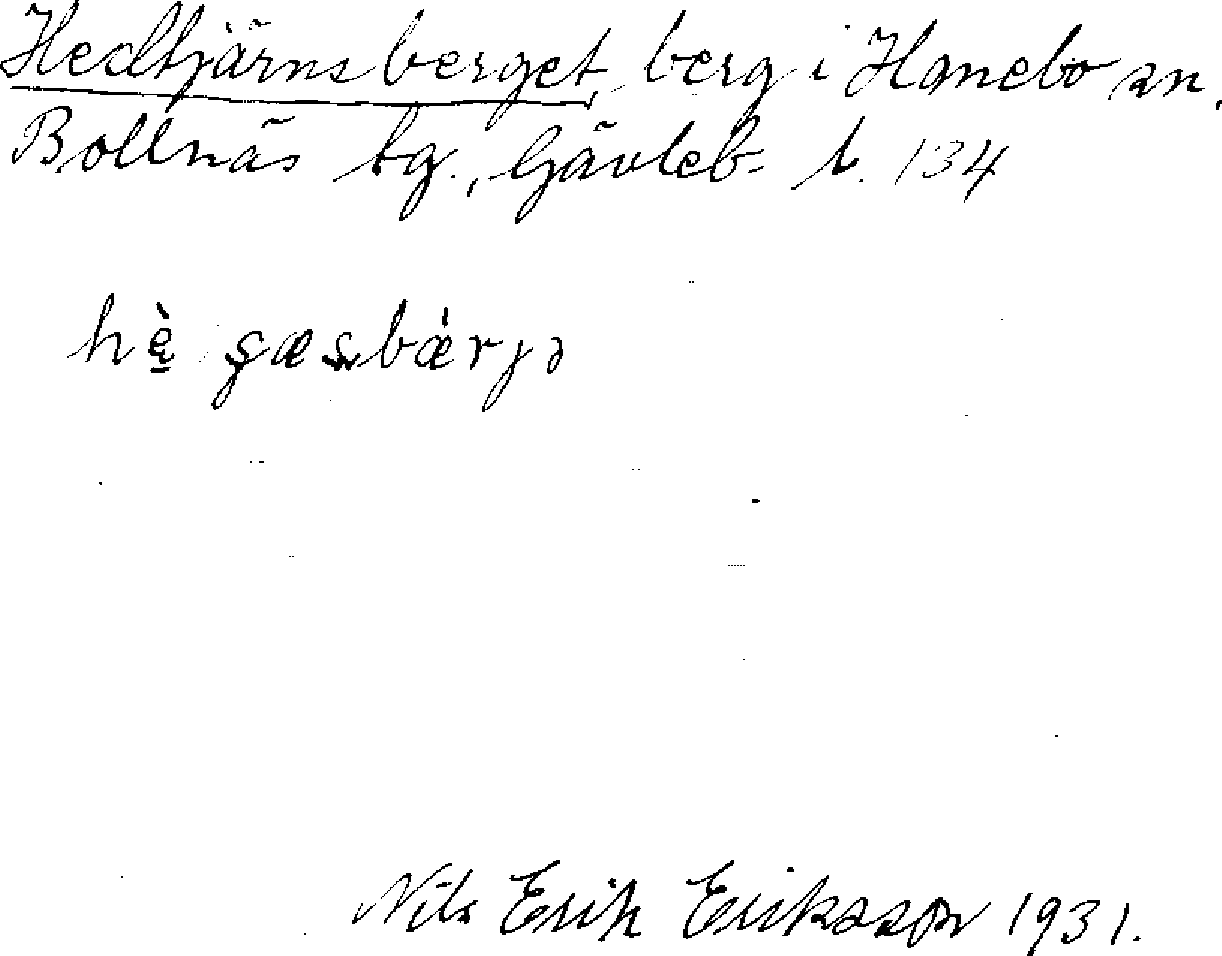 Hedtjärnsberget, berg i Hanebo sn,
Bollnäs tg., Gävleb. l. 134
Nils Erik Eriksson 1931.